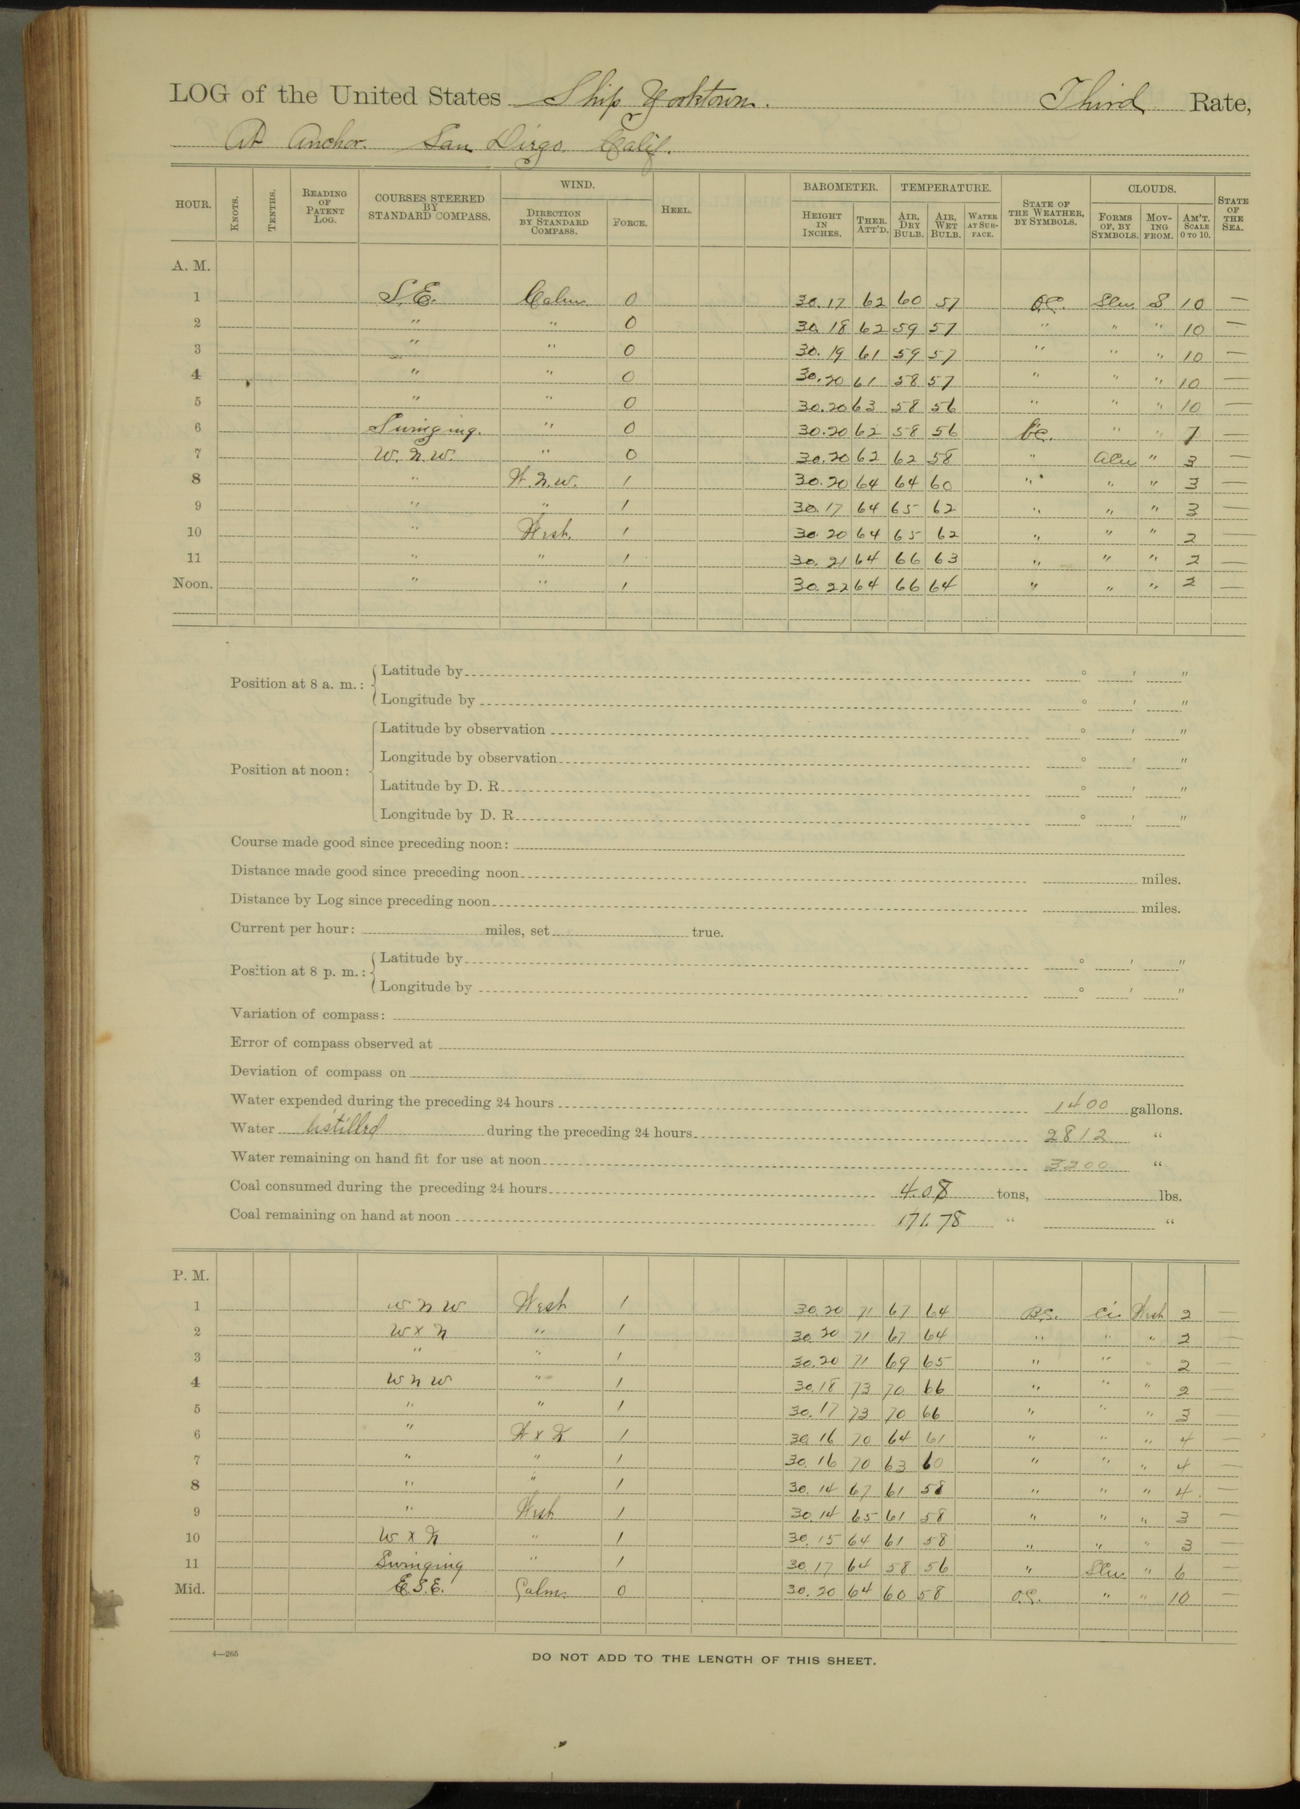 LOG of the United States Ship Yorktown. Third Rate,
At Anchor. San Diego. Calif.
HOUR. KNOTS. TENTHS. READING OF PATENT LOG. COURSES STEERED BY STANDARD COMPASS. WIND. DIRECTION BY STANDARD COMPASS. FORCE. HEEL. BAROMETER. HEIGHT IN INCHES. THER. ATT'D. TEMPERATURE. AIR, DRY BULB. AIR, WET BULB. WATER AT SURFACE. STATE OF THE WEATHER, BY SYMBOLS. CLOUDS. FORMS OF, BY SYMBOLS. MOVING FROM. AM'T. SCALE 0 TO 10. STATE OF THE SEA.
A. M.
1 S.E. Calm 0 30.17 62 60 57 O.C. S 10 —
2 " " 0 30.18 62 59 57 " " " 10 —
3 " " 0 30.19 61 59 57 " " " 10 —
4 " " 0 30.20 61 58 57 " " " 10 —
5 " " 0 30.20 63 58 56 " " " 10 —
6 Swinging. " 0 30.20 62 58 56 b.c. " " 7 —
7 W.N.W. " 0 30.20 62 62 58 " Acu " 3 —
8 " W.N.W. 1 30.20 64 64 60 " " " 3 —
9 " " 1 30.17 64 65 62 " " " 3 —
10 " West. 1 30.20 64 65 62 " " " 2 —
11 " " 1 30.21 64 66 63 " " " 2 —
Noon. " " 1 30.22 64 66 64 " " " 2 —
Position at 8 a. m.: Latitude by ° ' "
Longitude by ° ' "
Position at noon: Latitude by observation ° ' "
Longitude by observation ° ' "
Latitude by D. R. ° ' "
Longitude by D. R. ° ' "
Course made good since preceding noon:
Distance made good since preceding noon miles.
Distance by Log since preceding noon miles.
Current per hour: miles, set true.
Position at 8 p. m.: Latitude by ° ' "
Longitude by ° ' "
Variation of compass:
Error of compass observed at
Deviation of compass on
Water expended during the preceding 24 hours 1400 gallons.
Water distilled during the preceding 24 hours 2812 "
Water remaining on hand fit for use at noon 3200 "
Coal consumed during the preceding 24 hours 4.08 tons, lbs.
Coal remaining on hand at noon 171.78 " "
P. M.
1 W N W West 1 30.20 71 67 64 B.C. Ci West 2 —
2 W x N " 1 30.20 71 67 64 " " " 2 —
3 " " 1 30.20 71 69 65 " " " 2 —
4 W N W " 1 30.18 73 70 66 " " " 2 —
5 " " 1 30.17 73 70 66 " " " 3 —
6 " W x N 1 30.16 70 64 61 " " " 4 —
7 " " 1 30.16 70 63 60 " " " 4 —
8 " " 1 30.14 67 61 58 " " " 4 —
9 " West 1 30.14 65 61 58 " " " 3 —
10 W x N " 1 30.15 64 61 58 " " " 3 —
11 Swinging " 1 30.17 64 58 56 " " 6 —
Mid. E.S.E. Calm 0 30.20 64 60 58 O.C. " " 10 —
4—265
DO NOT ADD TO THE LENGTH OF THIS SHEET.